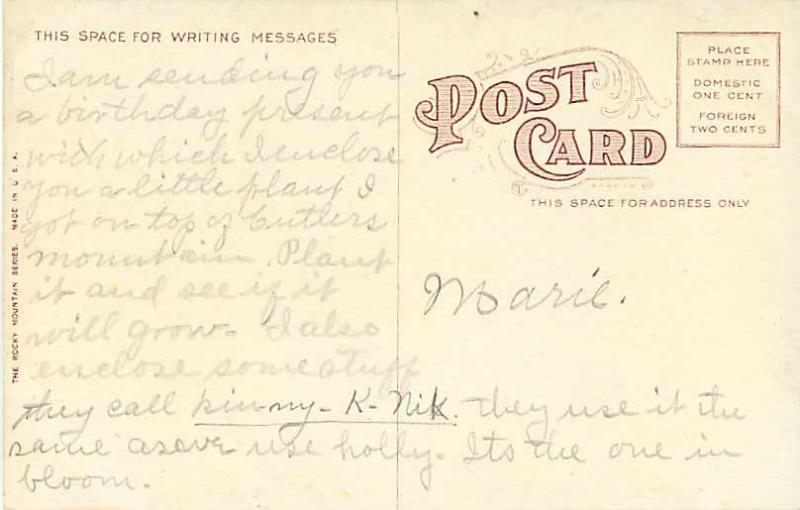 THIS SPACE FOR WRITING MESSAGES
I am sending you
a birthday present
with which I enclose
you a little plant I
got on top of Cutlers
mountain. Plant
it and see if it
will grow. I also
enclose some stuff
they call kin-ny-K-Nik. They use it the
same as we use holly. Its the one in
bloom.
THE ROCKY MOUNTAIN SERIES. MADE IN U.S.A.
POST
CARD
THIS SPACE FOR ADDRESS ONLY
PLACE
STAMP HERE
DOMESTIC
ONE CENT
FOREIGN
TWO CENTS
Marie.